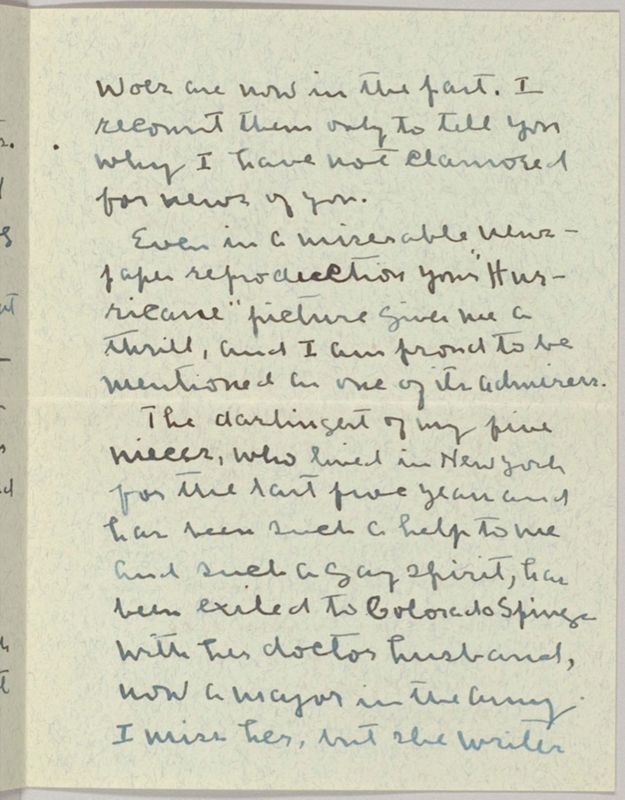 woes are now in the past. I
recount them only to tell you
why I have not clamored
for news of you.
Even in a miserable news-
paper reproduction your "Hur-
ricane" picture gives me a
thrill, and I am proud to be
mentioned as one of its admirers.
The darlingest of my five
nieces, who lived in New York
for the last five years and
has been such a help to me
and such a gay spirit, has
been exiled to Colorado Springs
with her doctor husband,
now a mayor in the army.
I miss her, but she writes